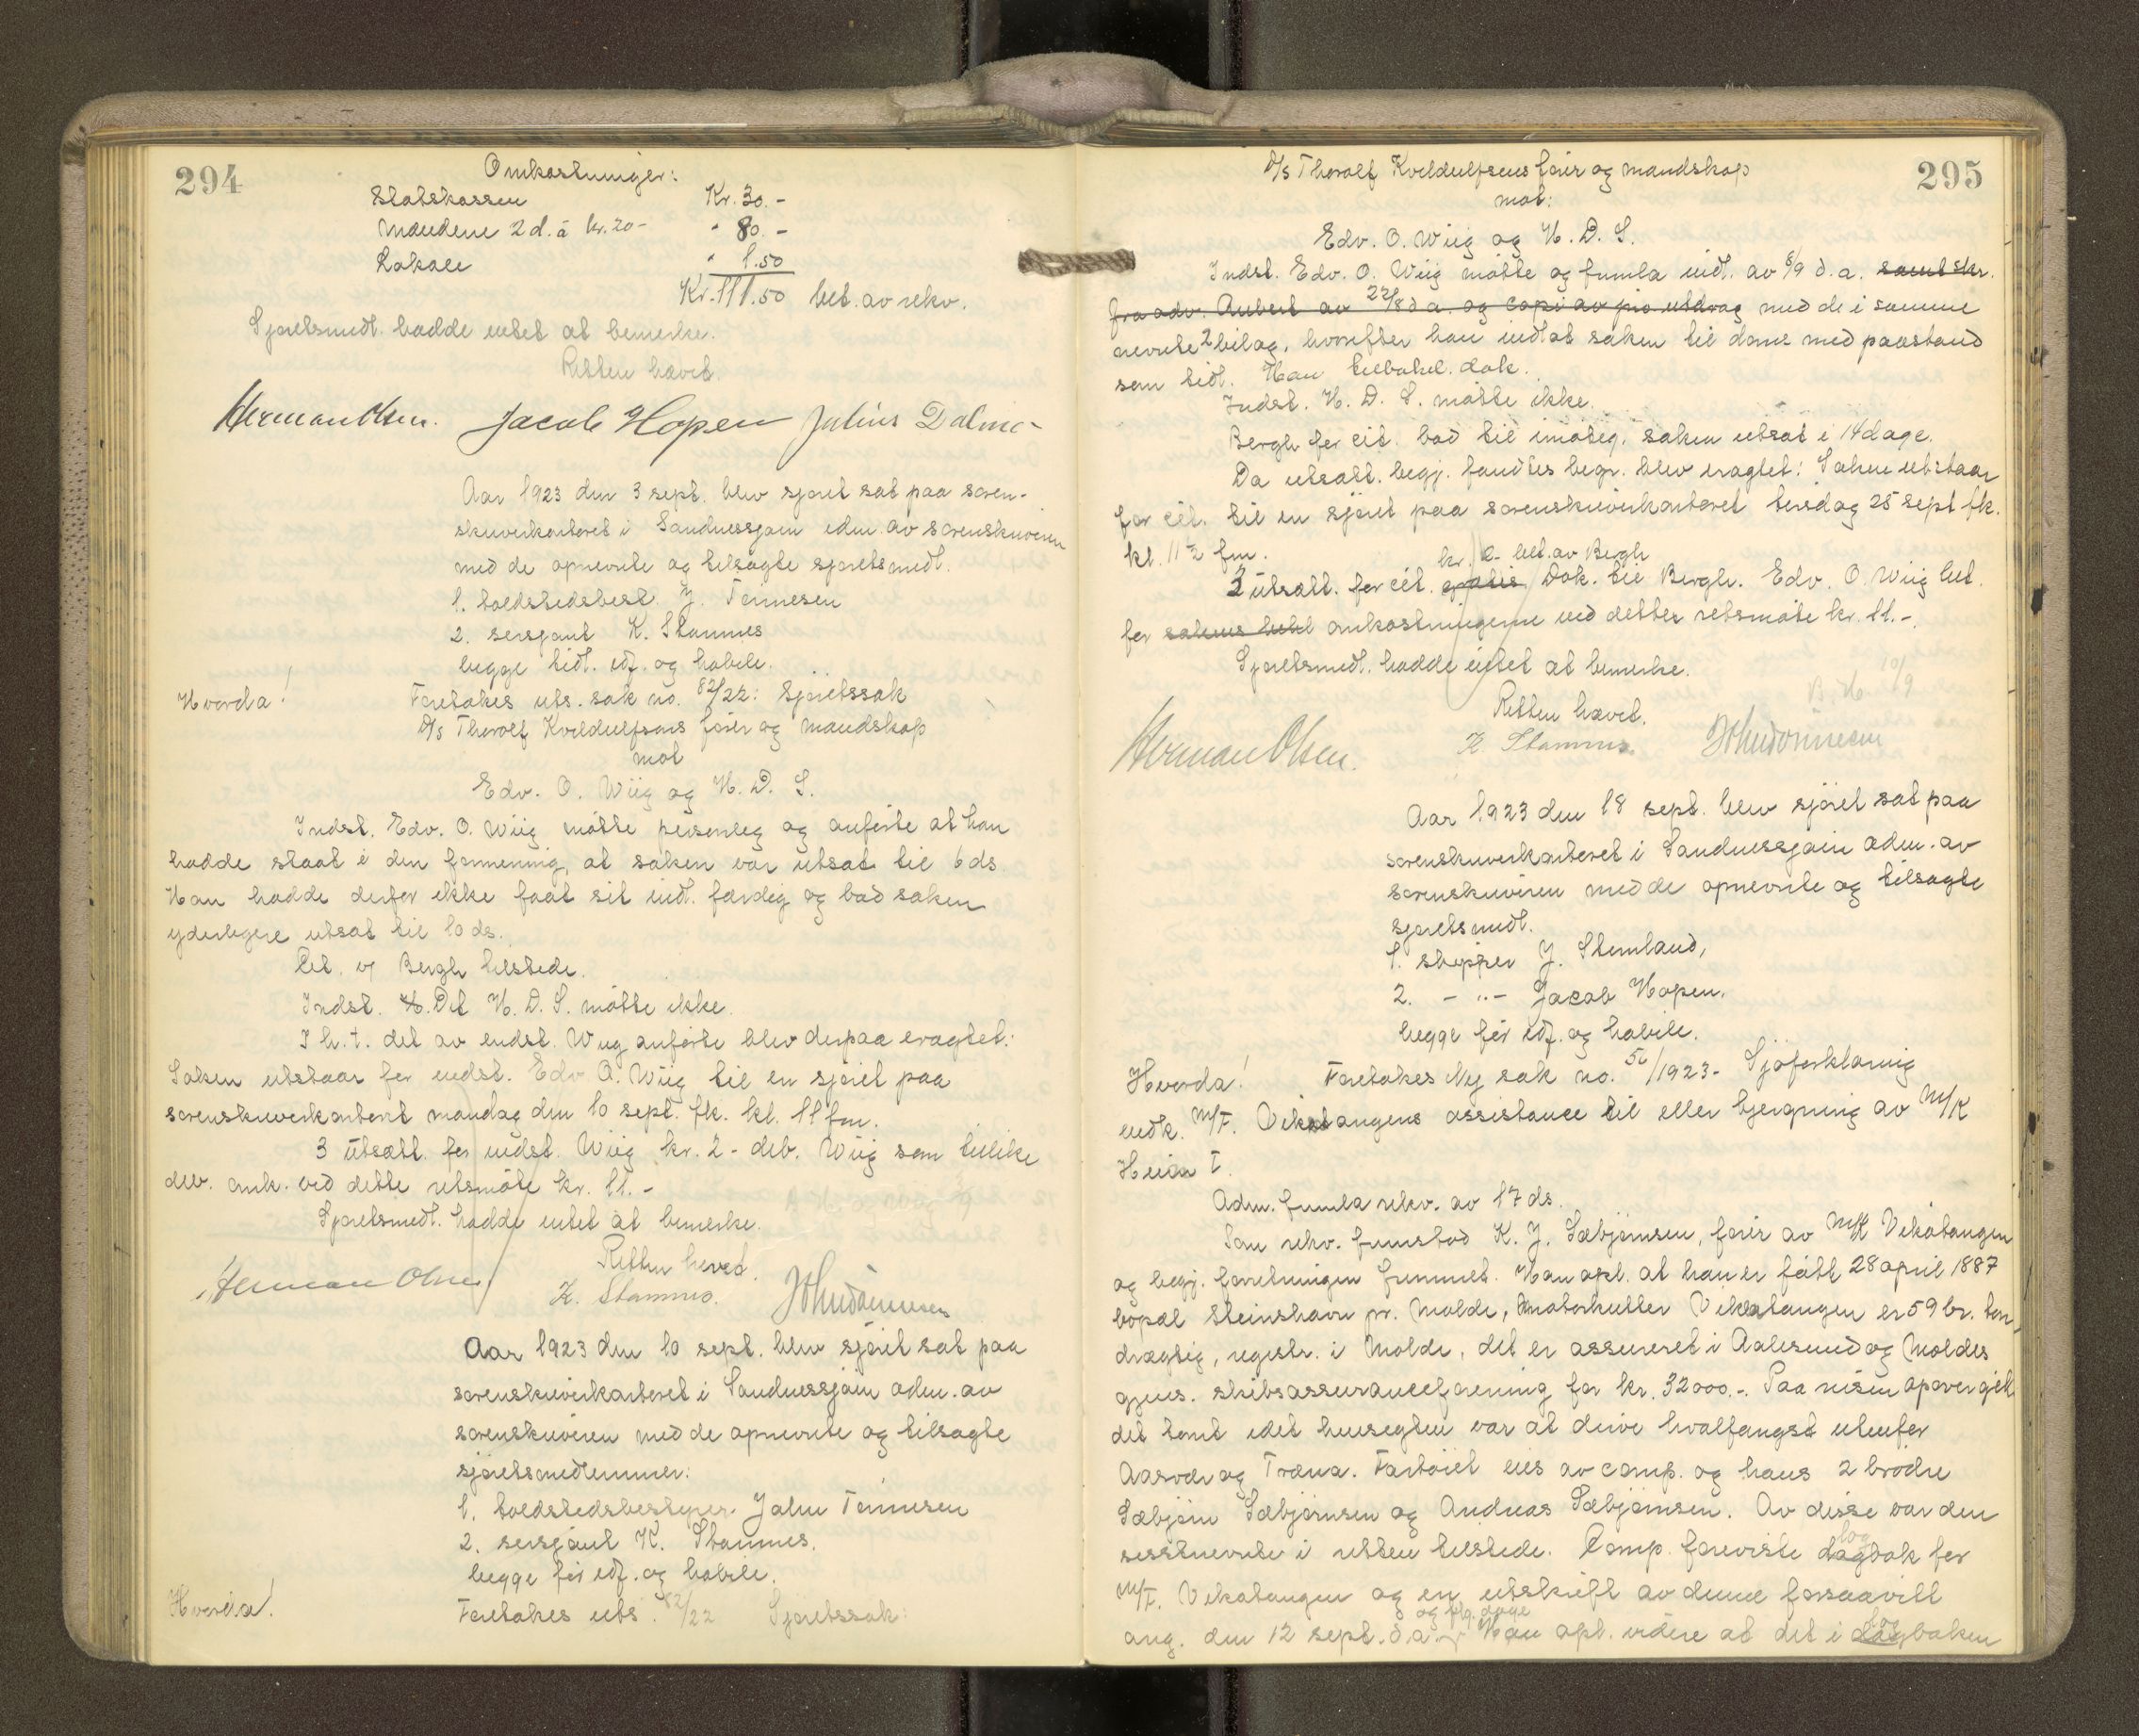 294
Omkostninger:
Statskassen Kr. 30.-
Mændene 2 d. á kr. 20- " 80.-
Lokale " 1.50
Kr. 111.50 bet. av rekv.
Sjøretsmedl. hadde intet at bemerke.
Retten hævet.
Herman Olsen. Jacob Hopen Julius Dalmo
Aar 1923 den 3 sept. blev sjøret sat paa soren-
skriverkontoret i Sandnessjøen adm. av sorenskriveren
med de opnevnte og tilsagte sjøretsmedl.
1. toldstedsbest. J. Tønnesen
2. sersjant K. Stamnes
begge tidl. edf. og habile.
Hvorda! Foretokes uts. sak no. 82/22: Sjøretssak
D/S Thorolf Kveldulfsøns fører og mandskap
mot
Edv. O. Wiig og N. D. S.
Indst. Edv. O. Wiig møtte personlig og anførte at han
hadde staat i den formening, at saken var utsat til 6 ds
Han hadde derfor ikke faat sit indl. færdig og bad saken
yderligere utsat til 10 ds.
Cit. v/ Bergh tilstede.
Indst. Det N. D. S. møtte ikke.
I h.t. det av indst. Wiig anførte blev derpaa eragtet:
Saken utstaar for indst. Edv O. Wiig til en sjøret paa
sorenskriverkontoret mandag den 10 sept. fk. kl. 11 fm.
3 utsætt. for indst. Wiig kr. 2- deb. Wiig som tillike
deb. omk. ved dette retsmøte kr. 11.-
Sjøretsmedl. hadde intet at bemerke.
Retten hevet.
Herman Olsen K. Stamnes. John Tønnesen
Aar 1923 den 10 sept. blev sjøret sat paa
sorenskriverkontoret i Sandnessjøen adm. av
sorenskriveren med de opnevnte og tilsagte
sjøretsmedlemmer:
1. toldstedsbestyrer John Tønnesen
2. sersjant K. Stamnes.
begge før edf. og habile.
Hvorda! Foretokes uts. 82/22 Sjøretssak:
295
D/S Thorolf Kveldulfsens fører og mandskap
mot:
Edv. O. Wiig og N. D. S.
Indst. Edv. O. Wiig møtte og fremla indl. av 8/9 d.a. samt skr.
fra adv. Aubert av 22/8 d a. og copi av pro utdrag med de i samme
nevnte 2 bilag, hvorefter han indlot saken til doms med paastand
som tidl. Han tilbakel. dok.
Indst. N. D. S. møtte ikke.
Bergh for cit. bad til imøteg. saken utsat i 14 dage.
Da utsætt. begj. fandtes begr. blev eragtet: Saken utstaar
for cit. til en sjøret paa sorenskriverkontoret tirsdag 25 sept fk.
kl. 11 1/2 fm.
kr. 2- bet. av Bergh
2 utsætt. for cit. gratis Dok. til Bergh. Edv. O. Wiig bet.
for omkostningerne ved dette retsmøte kr. 11.-.
Sjøretsmedl. hadde intet at bemerke.
10/9
Retten hævet.
Herman Olsen. K. Stamnes. John Tønnesen
Aar 1923 den 18 sept. blev sjøret sat paa
sorenskriverkontoret i Sandnessjøen adm. av
sorenskriveren med de opnevnte og tilsagte
sjøretsmedl.
1. skipper J. Stemland,
2. - " - Jacob Hopen.
begge før edf. og habile.
Hvorda! Foretokes Ny sak no. 56/1923- Sjøforklaring
vedk. M/F. Vikatangens assistance til eller bjergning av M/K
Heian I.
Adm. fremla rekv. av 17 ds.
Som rekv. fremstod K. J. Sæbjørnsen, fører av M/K Vikatangen
og begj. forretningen fremmet. Han opl. at han er født 28 april 1887
bopæl Steinshavn pr. Molde, Motorkutter Vikatangen er 59 br. ton
drægtig, registr. i Molde, det er assureret i Aalesund og Moldes
gjens. skibsassuranceforening for kr. 32000.-. Paa reisen opover gik
det tomt idet hensegten var at drive hvalfangst utenfor
Aasvær og Træna. Fartøiet eies av comp. og hans 2 brødre
Sæbjørn Sæbjørnsen og Andreas Sæbjørnsen. Av disse var den
sisstnevnte i retten tilstede. Comp. foreviste dagbok for
log
M/F. Vikatangen og en utskrift av denne forsaavitt
og flg. dage
ang. den 12 sept. d.a. Han opl. videre at det i dagboken
log